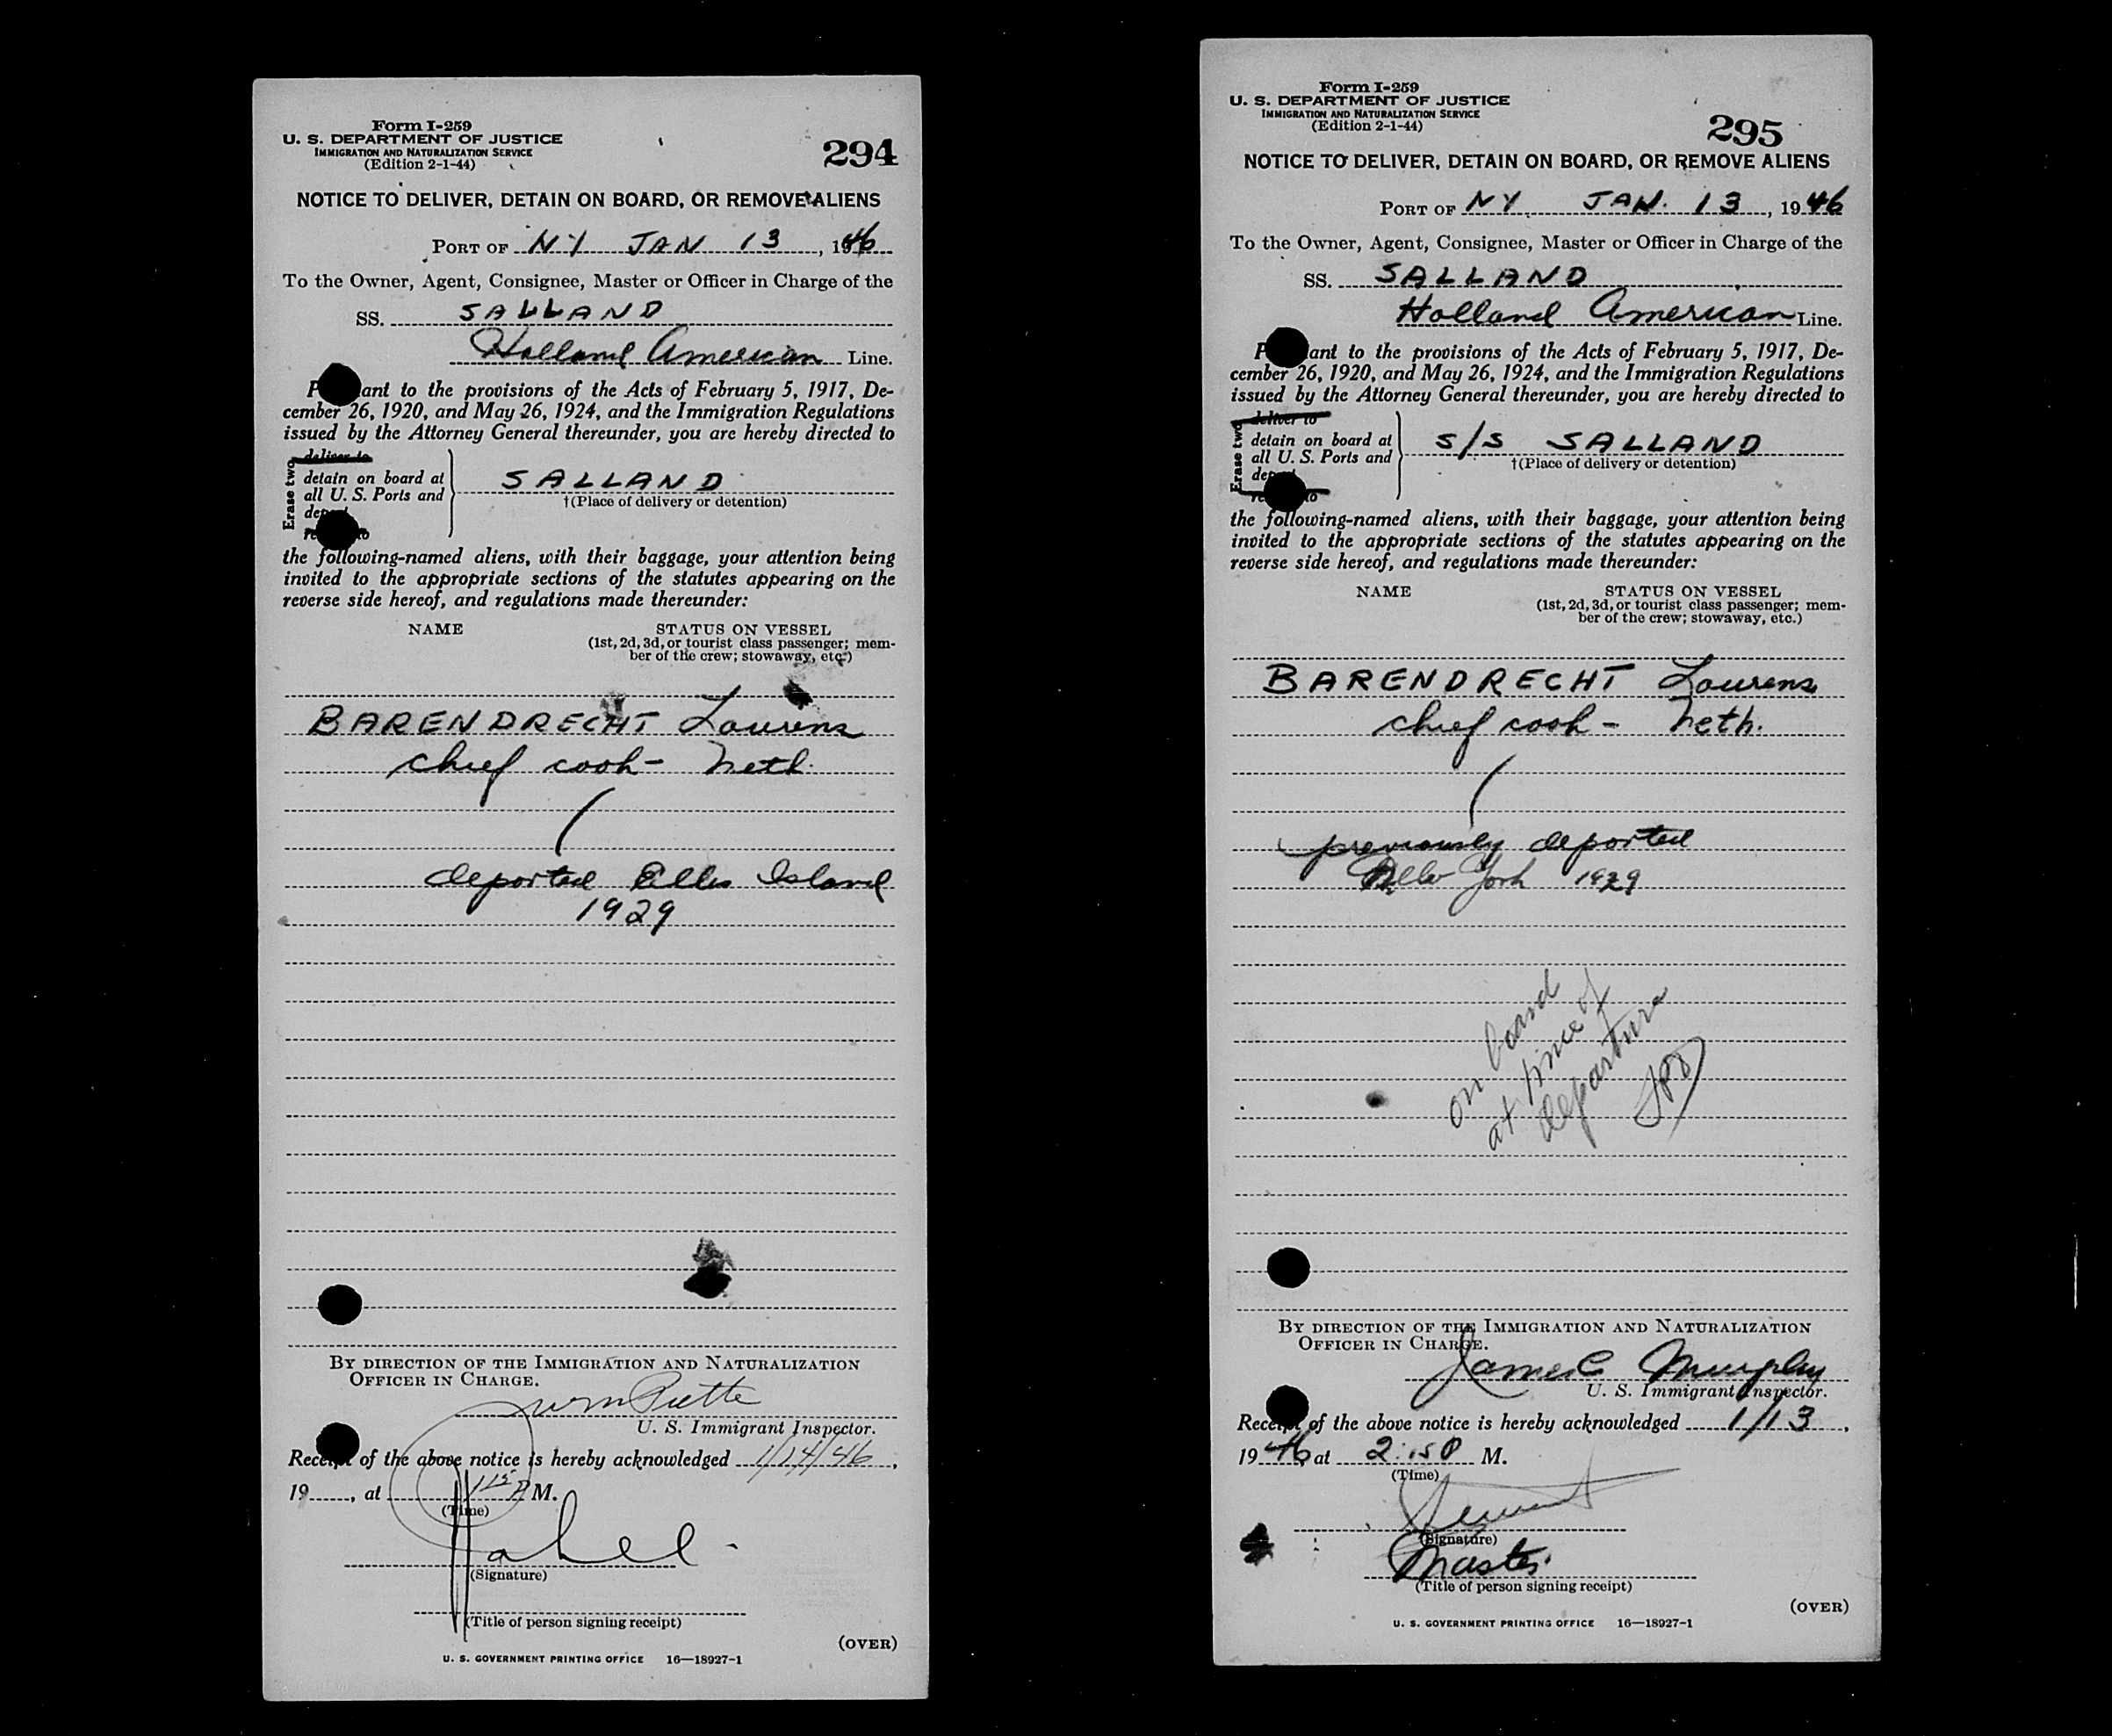 Form I-259
U. S. DEPARTMENT OF JUSTICE
IMMIGRATION AND NATURALIZATION SERVICE
(Edition 2-1-44)
294
NOTICE TO DELIVER, DETAIN ON BOARD, OR REMOVE ALIENS
PORT OF NY JAN 13, 1946
To the Owner, Agent, Consignee, Master or Officer in Charge of the
SS. SALLAND
Holland American Line.
P ant to the provisions of the Acts of February 5, 1917, De-
cember 26, 1920, and May 26, 1924, and the Immigration Regulations
issued by the Attorney General thereunder, you are hereby directed to
Erase two
deliver to
detain on board at
all U. S. Ports and
SALLAND
†(Place of delivery or detention)
the following-named aliens, with their baggage, your attention being
invited to the appropriate sections of the statutes appearing on the
reverse side hereof, and regulations made thereunder:
NAME STATUS ON VESSEL
(1st, 2d, 3d, or tourist class passenger; mem-
ber of the crew; stowaway, etc.)
BARENDRECHT Laurens
chief cook- Neth.
deported Ellis Island
1929
BY DIRECTION OF THE IMMIGRATION AND NATURALIZATION
OFFICER IN CHARGE.
U. S. Immigrant Inspector.
Receipt of the above notice is hereby acknowledged 1/14/46,
19 , at 1 15 P M.
(Time)
(Signature)
(Title of person signing receipt)
(OVER)
U. S. GOVERNMENT PRINTING OFFICE 16—18927-1
Form I-259
U. S. DEPARTMENT OF JUSTICE
IMMIGRATION AND NATURALIZATION SERVICE
(Edition 2-1-44)
295
NOTICE TO DELIVER, DETAIN ON BOARD, OR REMOVE ALIENS
PORT OF NY. JAN. 13, 1946
To the Owner, Agent, Consignee, Master or Officer in Charge of the
SS. SALLAND
Holland American Line.
P ant to the provisions of the Acts of February 5, 1917, De-
cember 26, 1920, and May 26, 1924, and the Immigration Regulations
issued by the Attorney General thereunder, you are hereby directed to
Erase two
deliver to
detain on board at
all U. S. Ports and
S/S SALLAND
†(Place of delivery or detention)
the following-named aliens, with their baggage, your attention being
invited to the appropriate sections of the statutes appearing on the
reverse side hereof, and regulations made thereunder:
NAME STATUS ON VESSEL
(1st, 2d, 3d, or tourist class passenger; mem-
ber of the crew; stowaway, etc.)
BARENDRECHT Laurens
chief cook- Neth.
previously deported
New York 1929
on board
at time of
departure
BY DIRECTION OF THE IMMIGRATION AND NATURALIZATION
OFFICER IN CHARGE.
James C Murphy
U. S. Immigrant Inspector.
Receipt of the above notice is hereby acknowledged 1/13,
1946 at 2:15 P M.
(Time)
(Signature)
Master
(Title of person signing receipt)
(OVER)
U. S. GOVERNMENT PRINTING OFFICE 16—18927-1